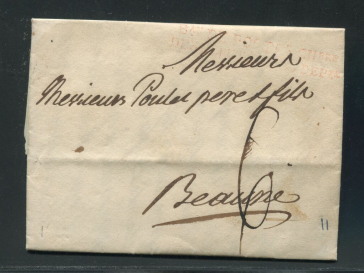 Messieurs
Messieurs Poulet pere & fils
Beaune
6